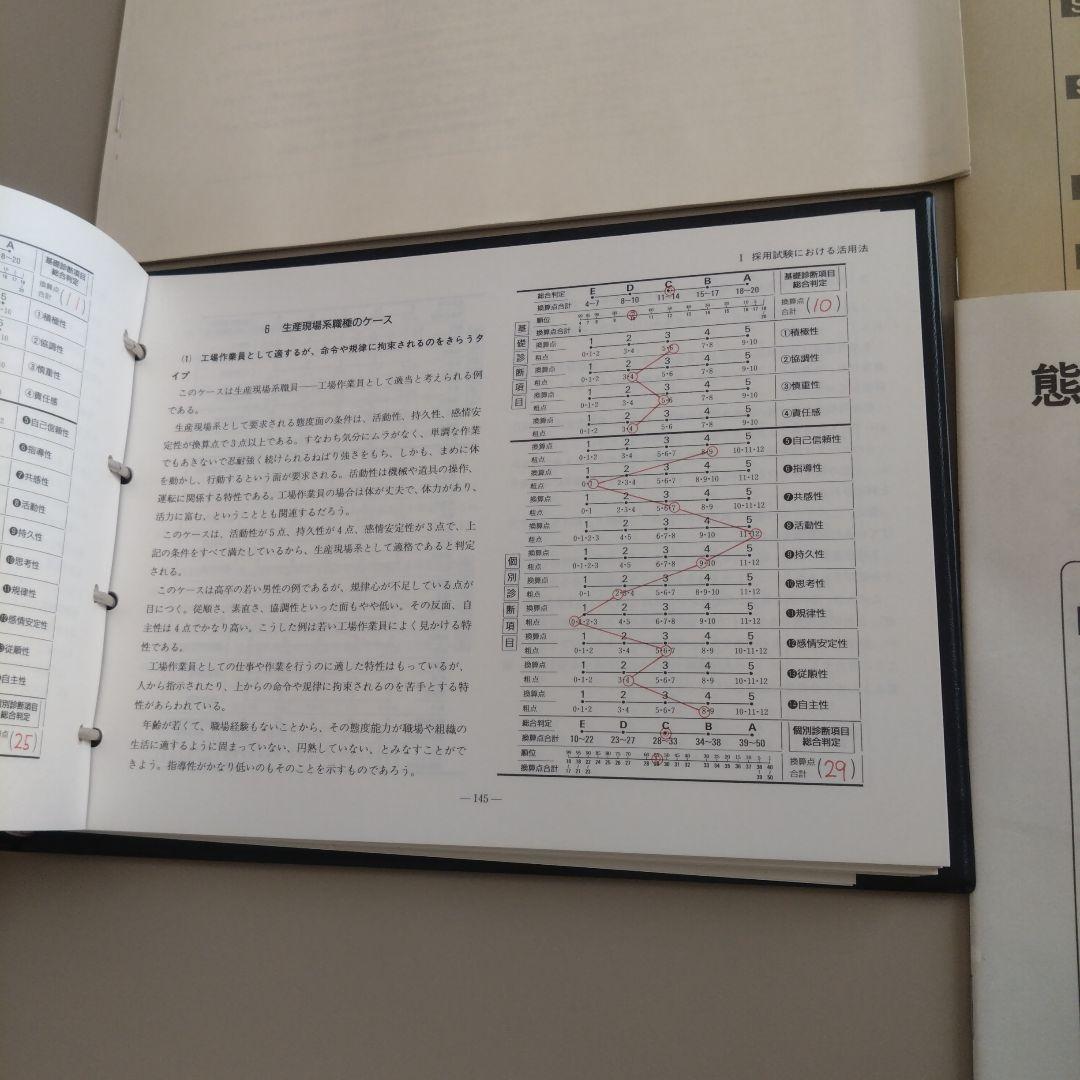 A
8~20
基礎診断項目
総合判定
換算点
合計 (11)
①積極性
②協調性
③慎重性
④責任感
❺自己信頼性
❻指導性
❼共感性
❽活動性
❾持久性
❿思考性
⓫規律性
⓬感情安定性
⓭従順性
自主性
個別診断項目
総合判定
(25)
I 採用試験における活用法
6 生産現場系職種のケース
(1) 工場作業員として適するが、命令や規律に拘束されるのをきらうタ
イプ
このケースは生産現場系職員——工場作業員として適当と考えられる例
である。
生産現場系として要求される態度面の条件は、活動性、持久性、感情安
定性が換算点で3点以上である。すなわち気分にムラがなく、単調な作業
でもあきないで忍耐強く続けられるねばり強さをもち、しかも、まめに体
を動かし、行動するという面が要求される。活動性は機械や道具の操作、
運転に関係する特性である。工場作業員の場合は体が丈夫で、体力があり、
活力に富む、ということとも関連するだろう。
このケースは、活動性が5点、持久性が4点、感情安定性が3点で、上
記の条件をすべて満たしているから、生産現場系として適格であると判定
される。
このケースは高卒の若い男性の例であるが、規律心が不足している点が
目につく。従順さ、素直さ、協調性といった面もやや低い。その反面、自
主性は4点でかなり高い。こうした例は若い工場作業員によく見かける特
性である。
工場作業員としての仕事や作業を行うのに適した特性はもっているが、
人から指示されたり、上からの命令や規律に拘束されるのを苦手とする特
性があらわれている。
年齢が若くて、職場経験もないことから、その態度能力が職場や組織の
生活に適するように固まっていない、円熟していない、とみなすことがで
きよう。指導性がかなり低いのもそのことを示すものであろう。
基礎診断項目
総合判定 E D C B A
換算点合計 4~7 8~10 11~14 15~17 18~20
基礎診断項目
総合判定
順位
換算点合計
換算点
合計 (10)
換算点 1 2 3 4 5
粗点 0・1・2 3・4 5・6 7・8 9・10
①積極性
換算点 1 2 3 4 5
粗点 0・1・2 3・4 5・6 7・8 9・10
②協調性
換算点 1 2 3 4 5
粗点 0・1・2 3・4 5・6 7・8 9・10
③慎重性
換算点 1 2 3 4 5
粗点 0・1・2 3・4 5・6 7・8 9・10
④責任感
個別診断項目
換算点 1 2 3 4 5
粗点 0・1・2 3・4 5・6・7 8・9 10・11・12
❺自己信頼性
換算点 1 2 3 4 5
粗点 0・1 2・3・4 5・6・7 8・9・10 11・12
❻指導性
換算点 1 2 3 4 5
粗点 0・1 2・3・4 5・6・7 8・9 10・11・12
❼共感性
換算点 1 2 3 4 5
粗点 0・1・2・3 4・5 6・7・8 9・10 11・12
❽活動性
換算点 1 2 3 4 5
粗点 0・1・2・3 4・5 6・7・8 9・10 11・12
❾持久性
換算点 1 2 3 4 5
粗点 0・1 2・3・4 5・6・7 8・9・10 11・12
❿思考性
換算点 1 2 3 4 5
粗点 0・1・2・3 4・5 6・7・8 9・10 11・12
⓫規律性
換算点 1 2 3 4 5
粗点 0・1・2 3・4 5・6・7 8・9 10・11・12
⓬感情安定性
換算点 1 2 3 4 5
粗点 0・1・2 3・4 5・6・7 8・9 10・11・12
⓭従順性
換算点 1 2 3 4 5
粗点 0・1・2 3・4 5・6・7 8・9 10・11・12
⓮自主性
総合判定 E D C B A
換算点合計 10~22 23~27 28~33 34~38 39~50
個別診断項目
総合判定
順位
換算点合計
換算点
合計 (29)
—145—
態